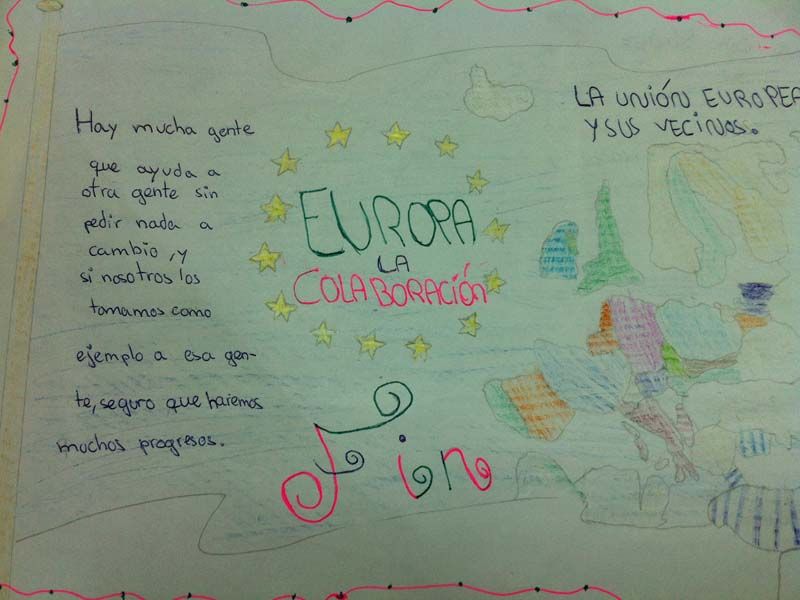 Hay mucha gente
que ayuda a
otra gente sin
pedir nada a
cambio, y
si nosotros los
tomamos como
ejemplo a esa gen-
te, seguro que haremos
muchos progresos.
EUROPA
LA
COLABORACIÓN
Fin
LA UNIÓN EUROPEA
Y SUS VECINOS.